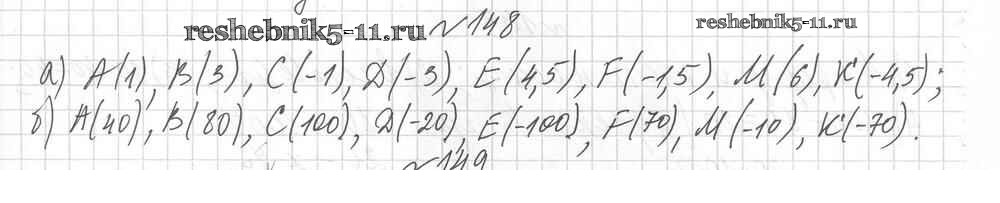 reshebnik5-11.ru №148 reshebnik5-11.ru
а) A(1), B(3), C(-1), D(-3), E(4,5), F(-1,5), M(6), K(-4,5);
б) A(40), B(80), C(100), D(-20), E(-100), F(70), M(-10), K(-70).
№149